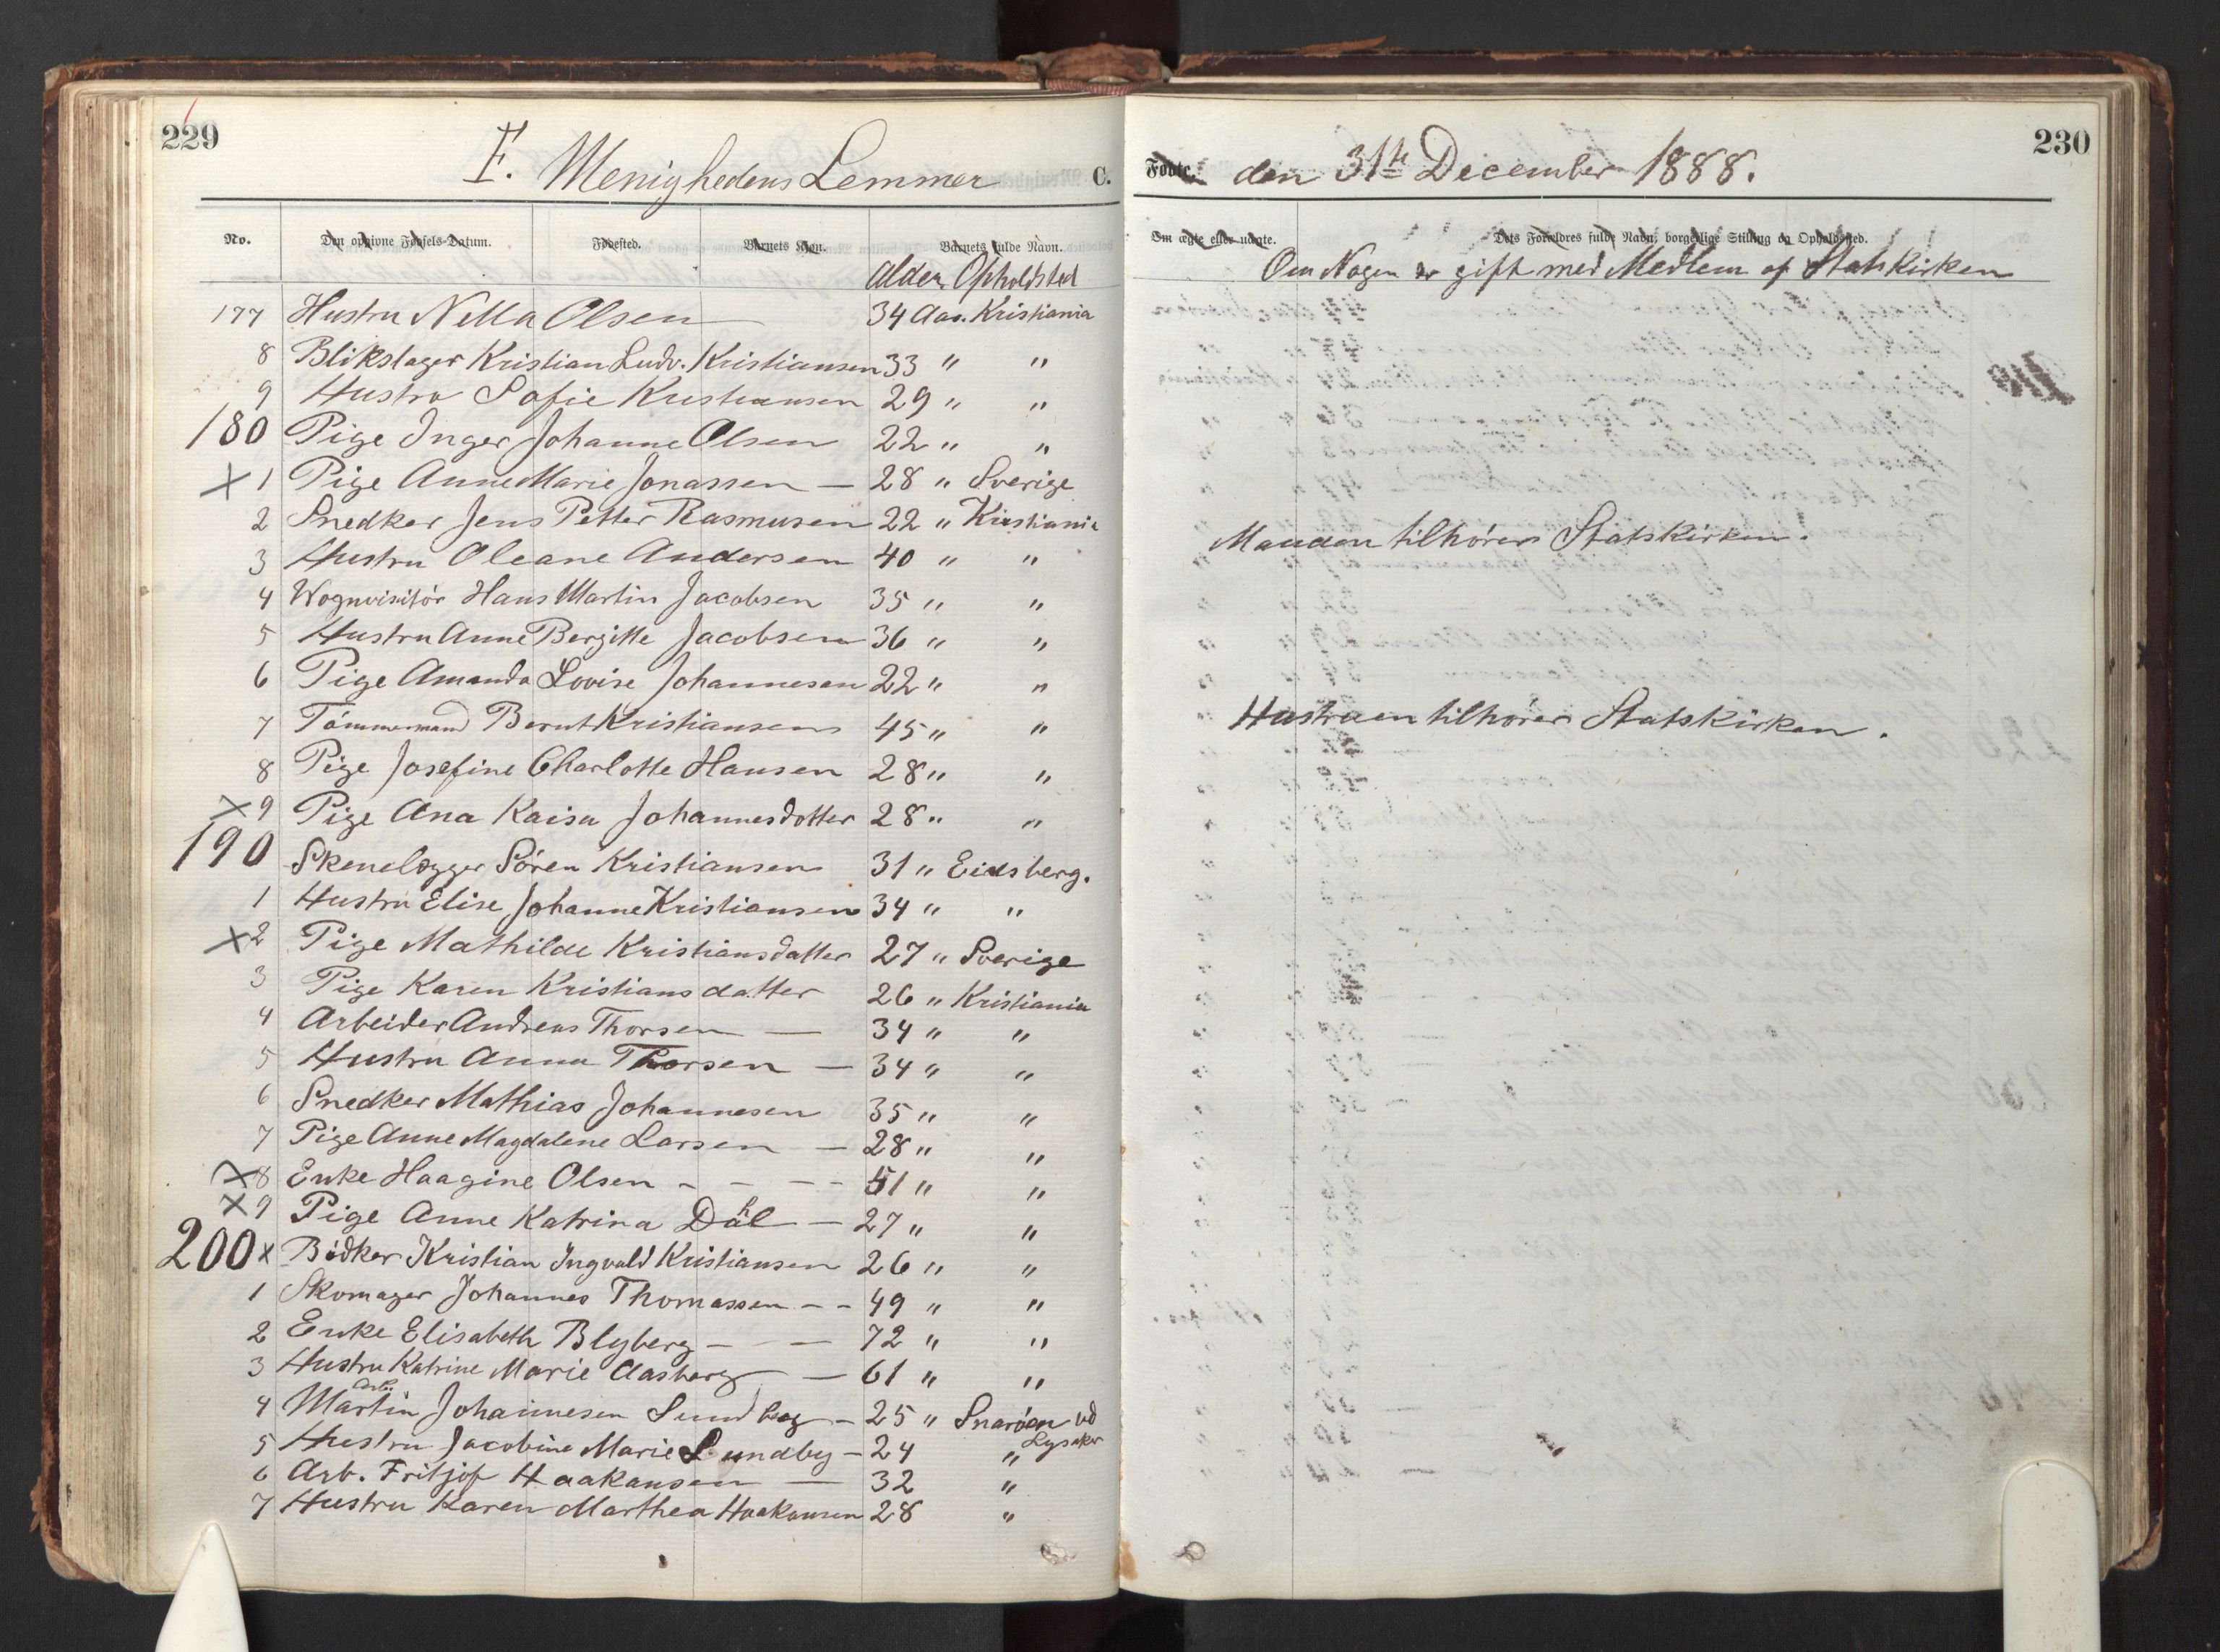 229
F. Menighedens Lemmer C.
No. Den opgivne Fødsels-Datum. Fødested. Barnets Kjøn. Barnets fulde Navn.
Alder. Opholdsted
177 Hustru Nella Olsen 34 Aar. Kristiania
8 Blikslager Kristian Ludv. Kristiansen 33 " "
9 Hustru Sofie Kristiansen 29 " "
180 Pige Inger Johanne Olsen 22 " "
X 1 Pige Anne Marie Jonassen — 28 " Sverige
2 Snedker Jens Petter Rasmusen 22 " Kristiania
3 Hustru Oleane Andersen 40 " "
4 Wognvisitör Hans Martin Jacobsen 35 " "
5 Hustru Anne Bergitte Jacobsen 36 " "
6 Pige Amanda Lovise Johannesen 22 " "
7 Tömmermand Bernt Kristiansen 45 " "
8 Pige Josefine Charlotte Hansen 28 " "
X 9 Pige Ana Kaisa Johannesdotter 28 " "
190 Skenelægger Sören Kristiansen 31 " Eidsberg.
1 Hustru Elise Johanne Kristiansen 34 " "
X 2 Pige Mathilde Kristiansdatter 27 " Sverige
3 Pige Karen Kristiansdatter 26 " Kristiania
4 Arbeider Andreas Thorsen — 34 " "
5 Hustru Anna Thorsen — 34 " "
6 Snedker Mathias Johannesen 35 " "
7 Pige Anne Magdalene Larsen — 28 " "
X 8 Enke Haagine Olsen - - - - 51 " "
X 9 Pige Anne Katrina Dahl — 27 " "
200 x Bödker Kristian Ingvald Kristiansen 26 " "
1 Skomager Johannes Thomassen - - 49 " "
2 Enke Elisabeth Blyberg — — 72 " "
3 Hustru Katrine Marie Aasberg — 61 " "
4 Arb. Martin Johannesen Lundbøy — 25 " Snaröen ved Lysaker
5 Hustru Jacobine Marie Lundby — 24 "
6 Arb. Fritjof Haakansen — 32 "
7 Hustru Karen Marthea Haakansen 28 "
230
Fødte. den 31th December 1888.
Om ægte eller uægte. Dets Forældres fulde Navn, borgerlige Stilling og Opholdssted.
Om Nogen er gift med Medlem af Statskirken
Manden tilhörer Statskirken.
Hustruen tilhörer Statskirken.